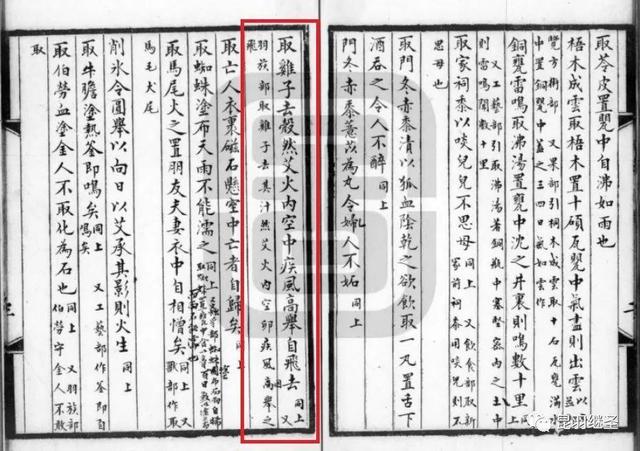 取苓皮置甖中自沸如雨也
梧木成雲取梧木置十碩瓦甖中氣盡則出雲
覽方術部 又果部引桐木成雲取十石瓦甖滿水
中置銅甖中蓋之三四日氣如雲作
銅甕雷鳴取沸湯置銅甕中沈之井裏則鳴數十里 同上
又工藝部引取沸湯著銅瓶中塞緊密內之土中
則雷鳴聞數十里
取家祠黍以啖兒兒不思母 同上 又飲食部取新
冢前祠黍用啖兒則不
思母也
取門冬赤黍漬以狐血陰乾之欲飲取一丸置舌下
酒吞之令人不醉 同上
門冬赤黍薏苡為丸令婦人不妬 同上
取雞子去殼然艾火內空中疾風高舉自飛去 同上 又
羽族部取雞子去其汁然艾火內空卵疾風高舉之
飛
取亡人衣裹磁石懸空中亡者自歸矣 同上
取蜘蛛塗布天雨不能濡之 同上
取馬尾火之置朋友夫妻衣中自相憎矣 同上 又
獸部作取
馬毛犬尾
削氷令圓舉以向日以艾承其影則火生 同上
取牛膽塗熱釜即鳴矣 同上 又工藝部作釜即自
鳴矣
取伯勞血塗金人不取化為石也 同上 又羽族部
伯勞守金人不敢
取
昆羽继圣